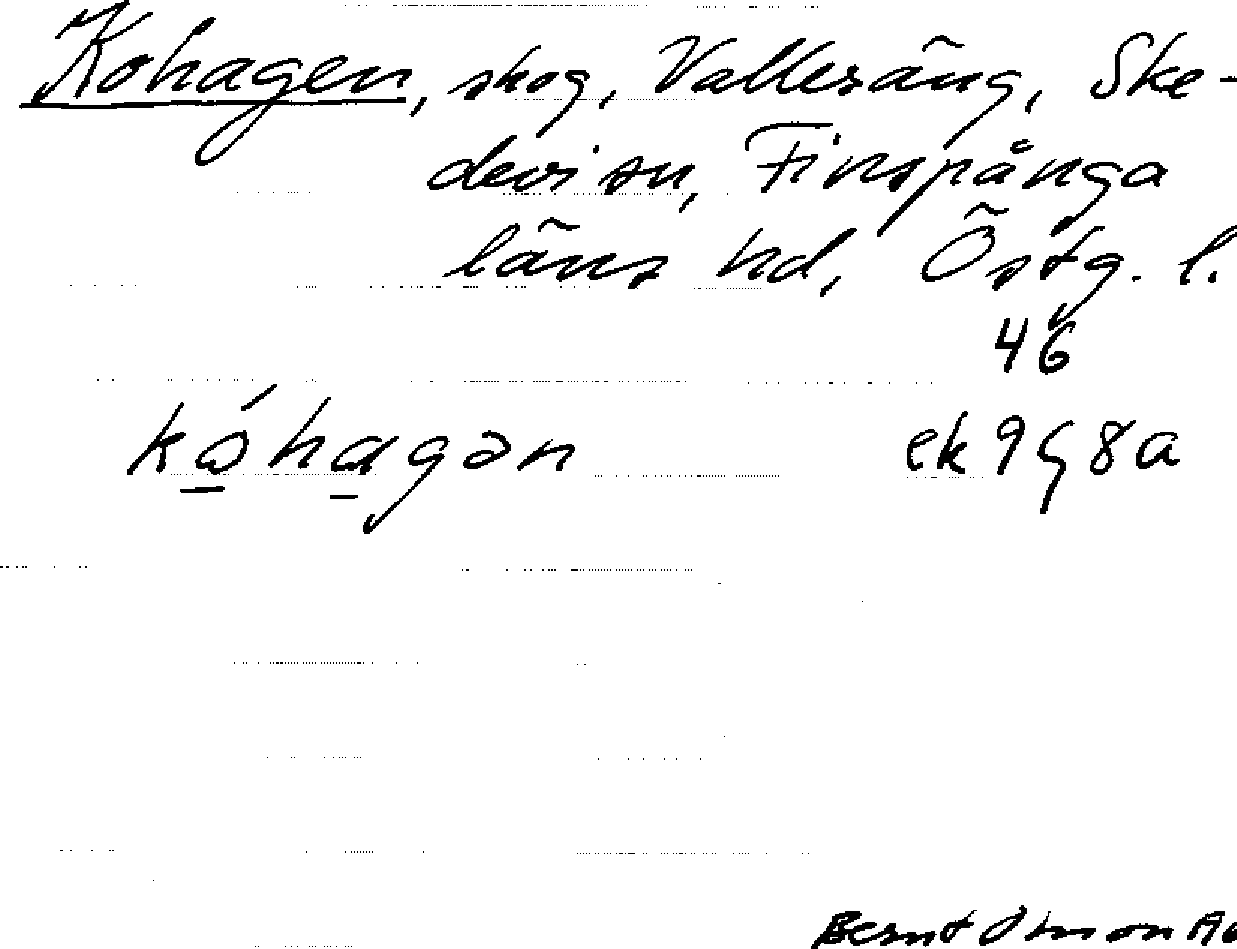 Kohagen, skog, Vallesäng, Ske-
devi sn, Finspånga
läns hd, Östg. l.
46
kóhagən ek 9G8a
Bernt